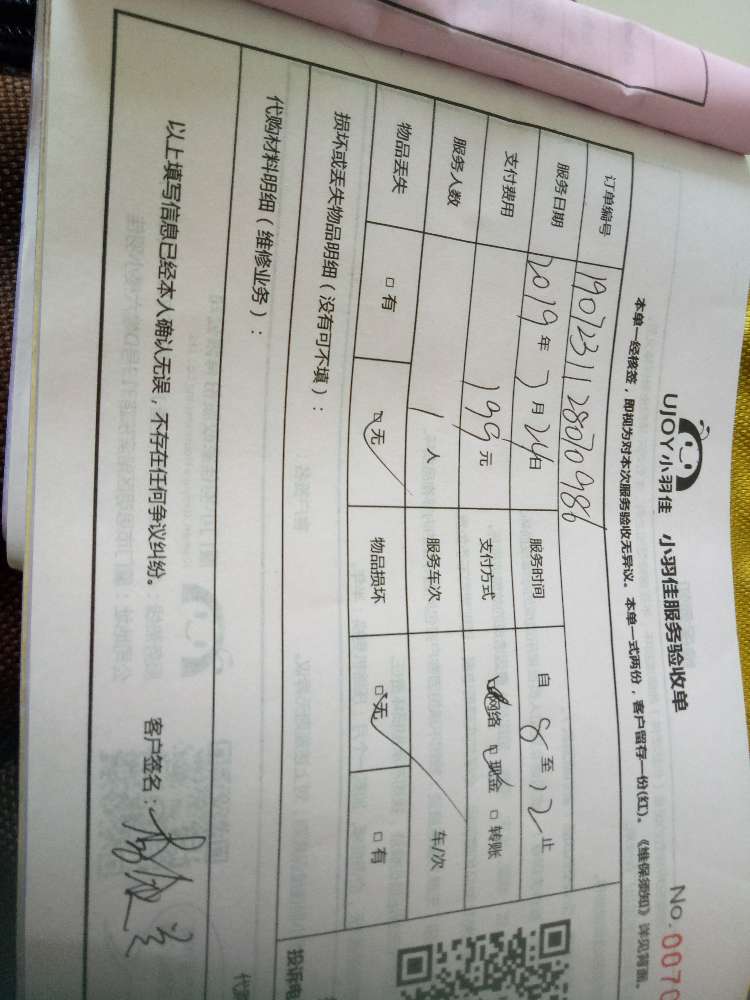 UJOY小羽佳 小羽佳服务验收单
No.0070
本单一经核签，即视为对本次服务验收无异议。本单一式两份，客户留存一份(红)。《维保须知》详见背面。
订单编号 1907231128070986
服务日期 2019年7月24日 服务时间 自8至12止
支付费用 199元 支付方式 网络 现金 □转账
服务人数 1人 服务车次 车/次
物品丢失 □有 □无 物品损坏 □无 □有
损坏或丢失物品明细（没有可不填）：
代购材料明细（维修业务）：
以上填写信息已经本人确认无误，不存在任何争议纠纷。 客户签名：
投诉电
代